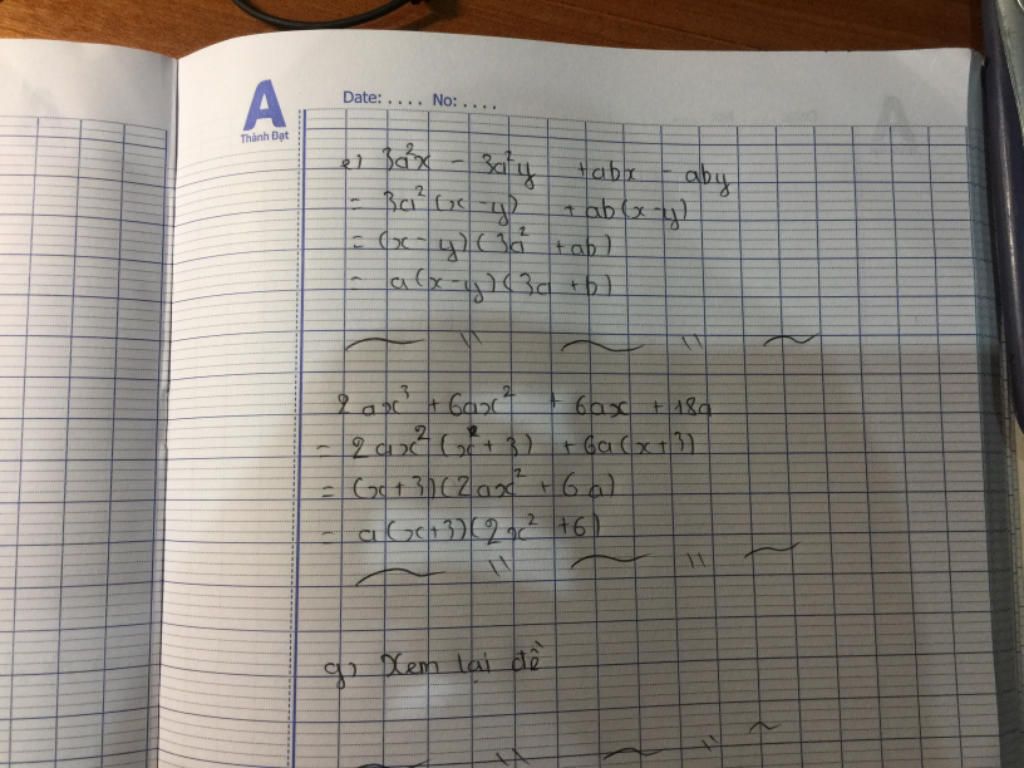 A
Thành Đạt
Date: .... No: ....
e) 3a²x - 3a²y + abx - aby
= 3a²(x-y) + ab(x-y)
= (x-y)(3a² + ab)
= a(x-y)(3a+b)
2ax³ + 6ax² + 6ax + 18a
= 2ax²(x+3) + 6a(x+3)
= (x+3)(2ax² + 6a)
= a(x+3)(2x² + 6)
g) Xem lại đề